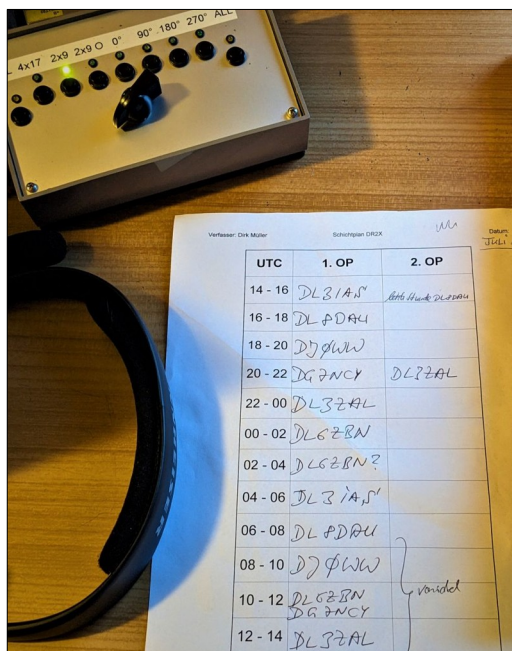 4x17 2x9 2x9 O 0° 90° 180° 270° ALL
Verfasser: Dirk Müller Schichtplan DR2X Datum:
JULI
UTC 1. OP 2. OP
14 - 16 DL3IAS letzte Stunde DL8DAU
16 - 18 DL8DAU
18 - 20 DJØWW
20 - 22 DG7NCY DL3ZAL
22 - 00 DL3ZAL
00 - 02 DL6ZBN
02 - 04 DL6ZBN?
04 - 06 DL3iAS
06 - 08 DL8DAU
08 - 10 DJØWW
10 - 12 DL6ZBN
DG7NCY
12 - 14 DL3ZAL